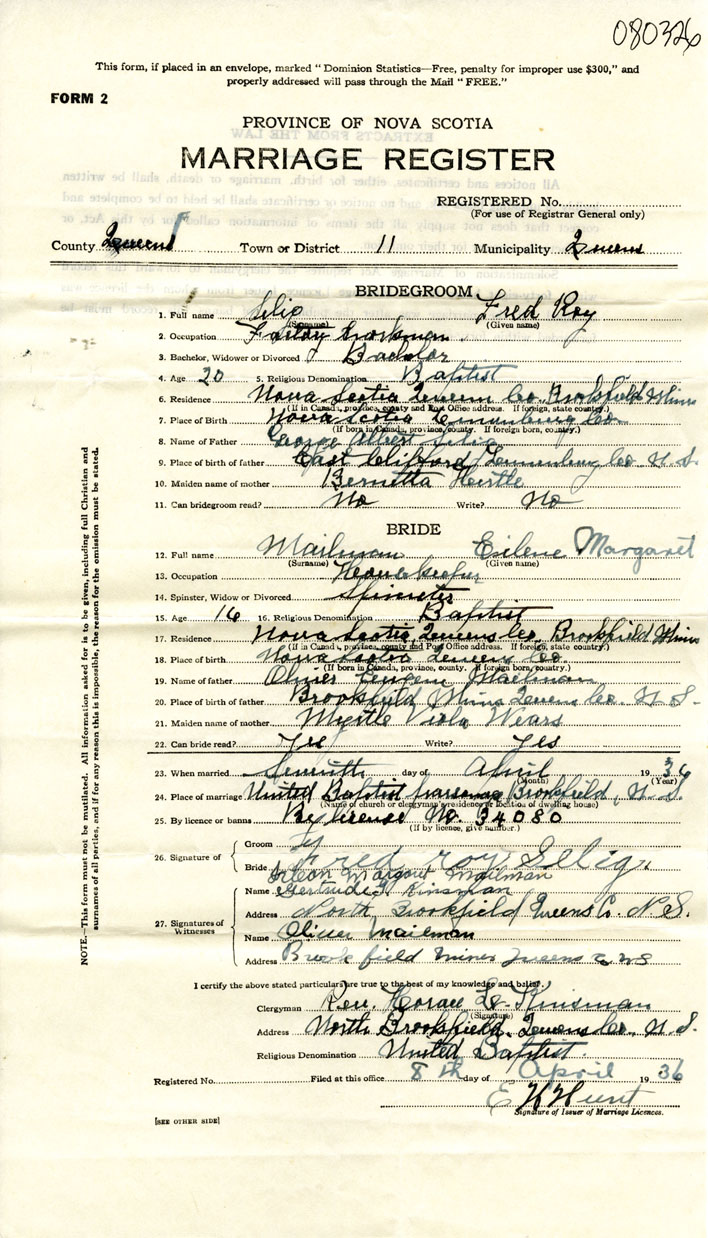 080326
This form, if placed in an envelope, marked "Dominion Statistics—Free, penalty for improper use $300," and
properly addressed will pass through the Mail "FREE."
FORM 2
PROVINCE OF NOVA SCOTIA
MARRIAGE REGISTER
REGISTERED No.
(For use of Registrar General only)
County Queens Town or District 11 Municipality Queens
BRIDEGROOM
1. Full name Selig Fred Roy
(Surname) (Given name)
2. Occupation
3. Bachelor, Widower or Divorced Bachelor
4. Age 20 5. Religious Denomination Baptist
6. Residence Nova Scotia Queens Co. Brookfield Mines
(If in Canada, province, county and Post Office address. If foreign, state country.)
7. Place of Birth Nova Scotia Lunenburg Co.
(If born in Canada, province, county. If foreign born, country.)
8. Name of Father George Albert Selig
9. Place of birth of father East Clifford Lunenburg Co. N.S.
10. Maiden name of mother Bernetta
11. Can bridegroom read? No Write? No
BRIDE
12. Full name Mailman Eilene Margaret
(Surname) (Given name)
13. Occupation Housekeeper
14. Spinster, Widow or Divorced Spinster
15. Age 16 16. Religious Denomination Baptist
17. Residence Nova Scotia, Queens Co. Brookfield Mines
(If in Canada, province, county and Post Office address. If foreign, state country.)
18. Place of birth Nova Scotia Queens Co.
(If born in Canada, province, county. If foreign born, country.)
19. Name of father Oliver Eugene Mailman
20. Place of birth of father Brookfield Mines Queens Co. N.S.
21. Maiden name of mother Myrtle Viola Wears
22. Can bride read? Yes Write? Yes
23. When married Seventh day of April 1936
(Month) (Year)
24. Place of marriage United Baptist parsonage Brookfield, N.S.
(Name of church or clergyman's residence or location of dwelling house)
25. By licence or banns By license No. 34080
(If by licence, give number.)
26. Signature of
Groom Fred roy Selig.
Bride Eileen Margaret Mailman
27. Signatures of Witnesses
Name Gertrude H Kinsman
Address North Brookfield Queens Co. N.S.
Name Oliver Mailman
Address Brookfield Mines Queens Co NS
I certify the above stated particulars are true to the best of my knowledge and belief.
Clergyman Rev. Horace L. Kinsman
(Signature)
Address North Brookfield, Queens Co. N.S.
Religious Denomination United Baptist.
Registered No. Filed at this office 8th day of April 1936
E K Hunt
Signature of Issuer of Marriage Licences.
[SEE OTHER SIDE]
NOTE.—This form must not be mutilated. All information asked for is to be given, including full Christian and
surnames of all parties, and if for any reason this is impossible, the reason for the omission must be stated.